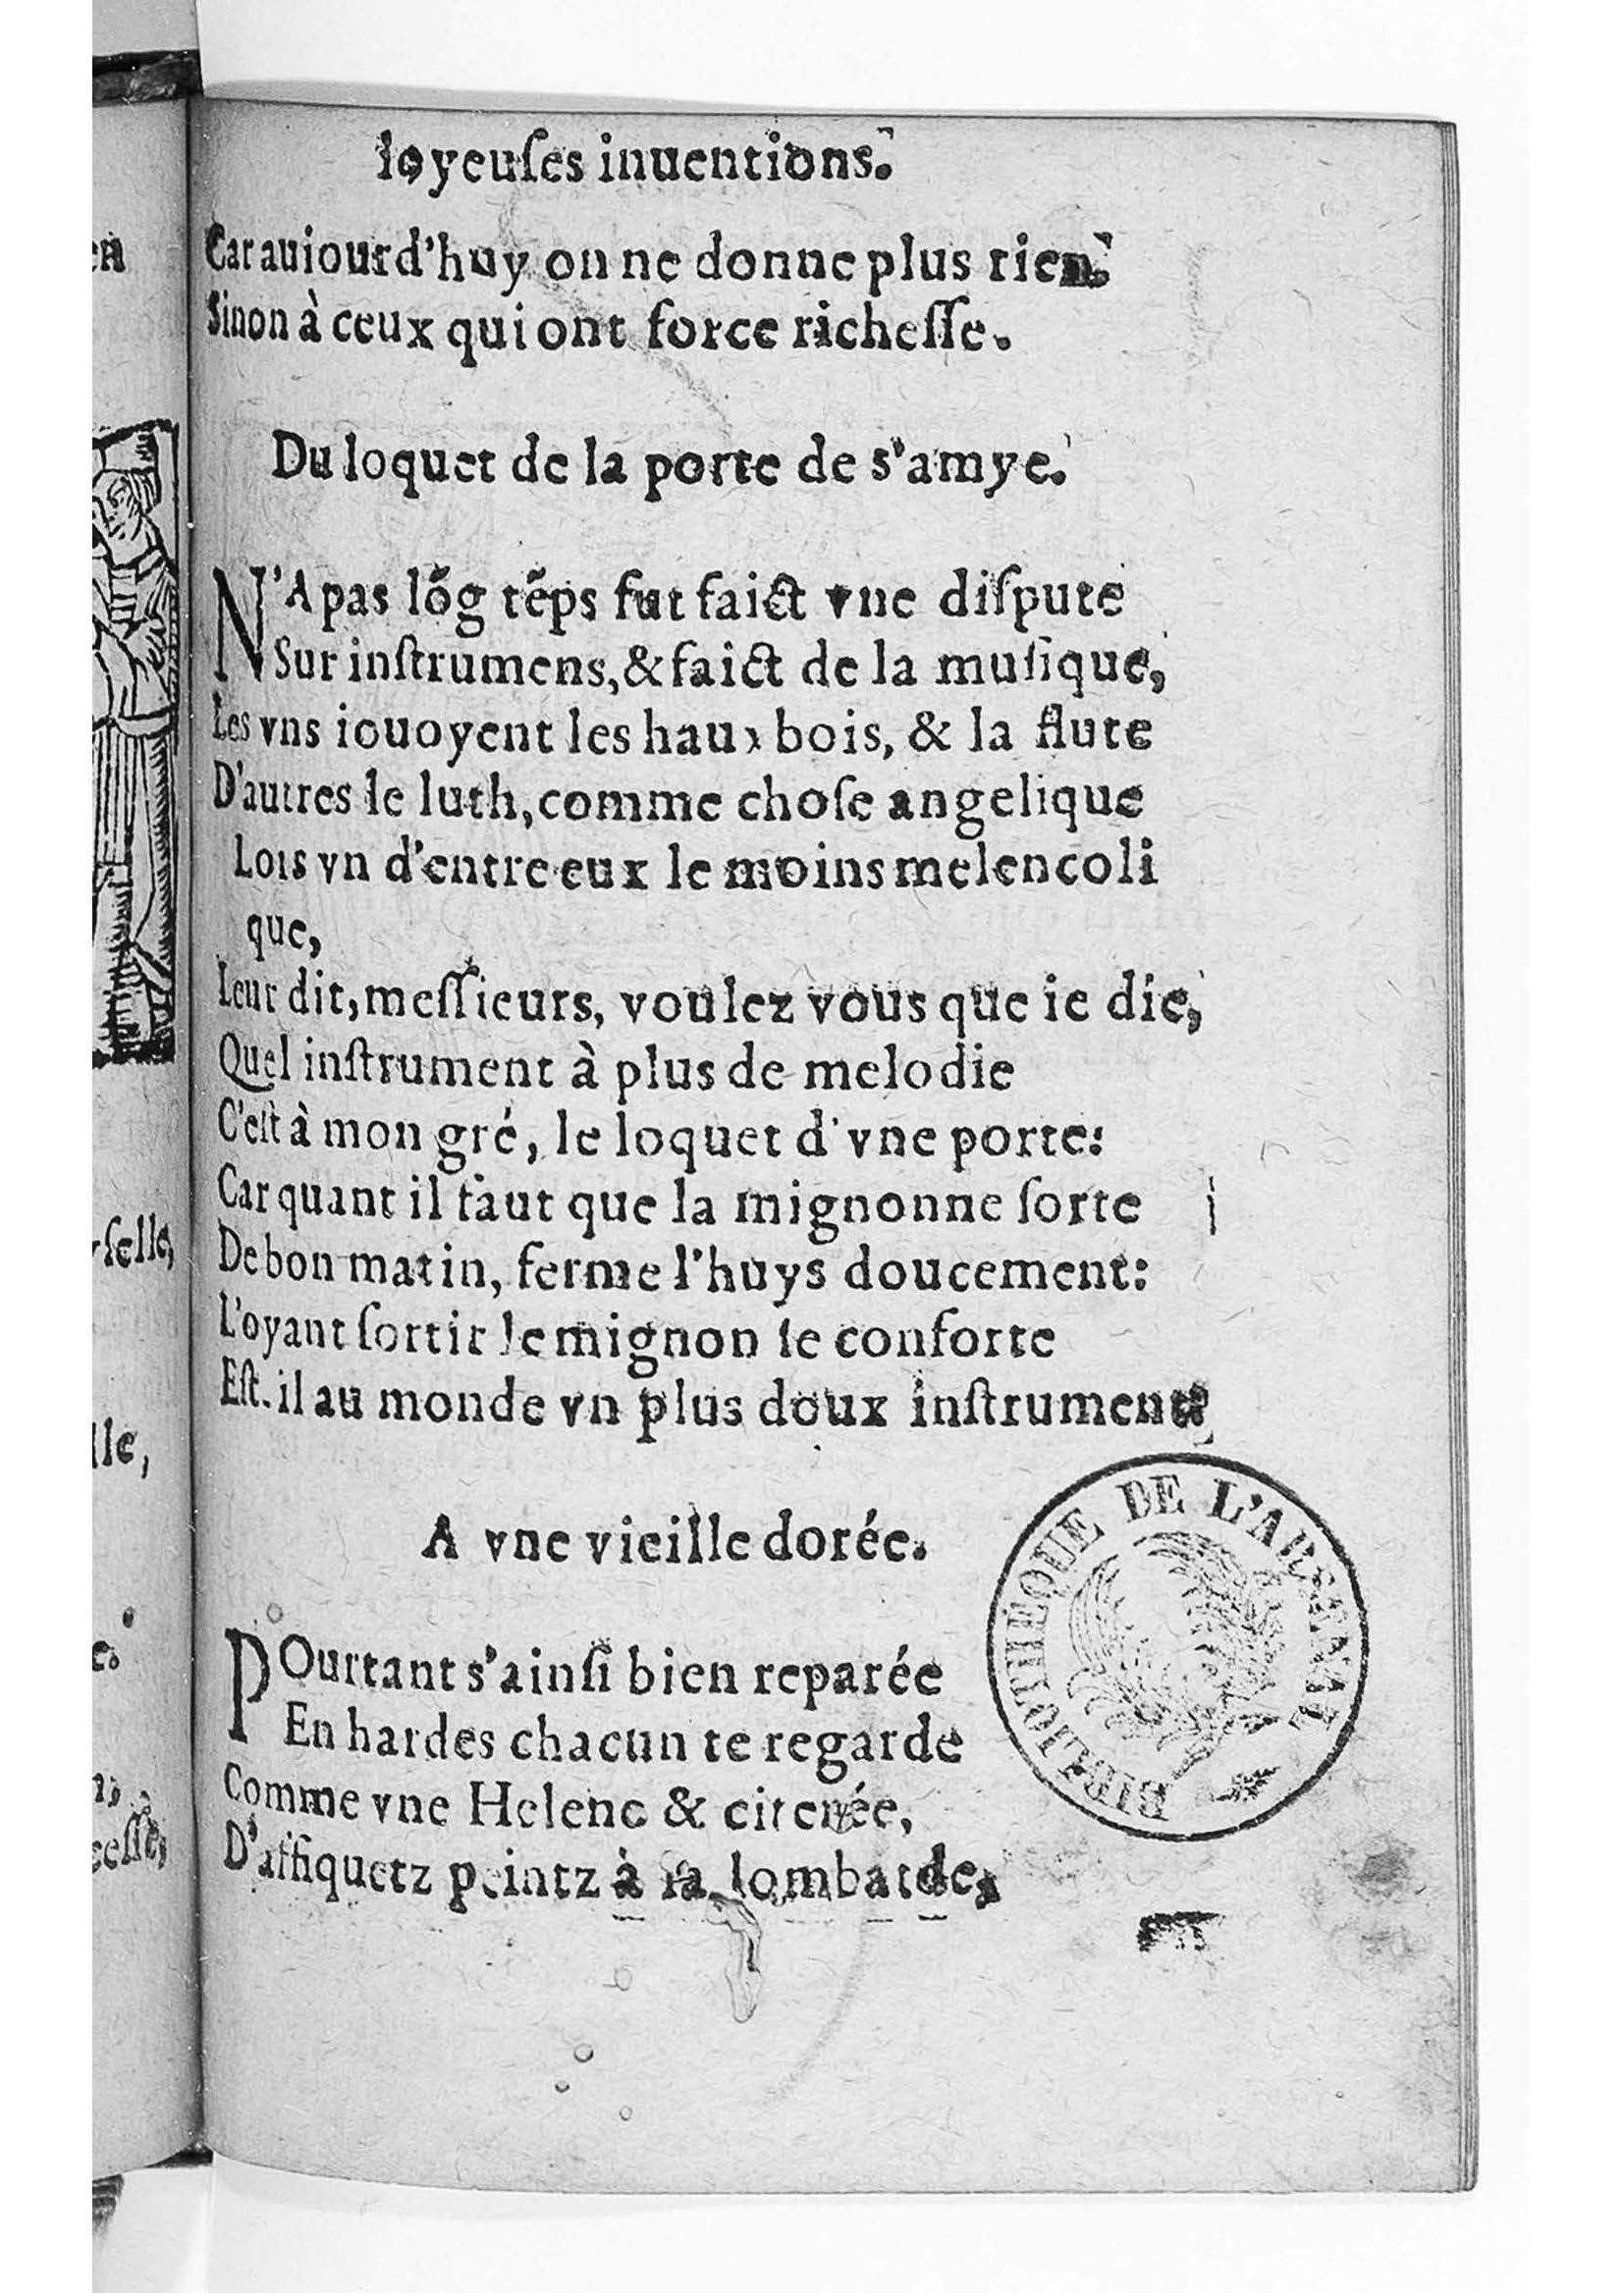 Ioyeuſes inuentions.
Car auiourd'huy on ne donne plus rien.
Sinon à ceux qui ont force richeſſe.
Du loquet de la porte de s'amye.
N'A pas lõg tẽps fut faict vne diſpute
Sur inſtrumens, & faict de la muſique,
Les vns iouoyent les haux bois, & la flute
D'autres le luth, comme choſe angelique
Lois vn d'entre eux le moins melencoli
que,
Leur dit, meſſieurs, voulez vous que ie die,
Quel inſtrument à plus de melodie
C'eſt à mon gré, le loquet d'vne porte:
Car quant il faut que la mignonne ſorte
De bon matin, ferme l'huys doucement:
L'oyant ſortir le mignon ſe conforte
Eſt-il au monde vn plus doux inſtrument?
A vne vieille dorée.
POurtant s'ainſi bien reparée
En hardes chacun te regarde
Comme vne Helene & citerée,
D'affiquetz peintz à la lombarde,
BIBLIOTHÈQUE DE L'ARSENAL
en
rſelle,
lle,
e.
n,
ceſſe,